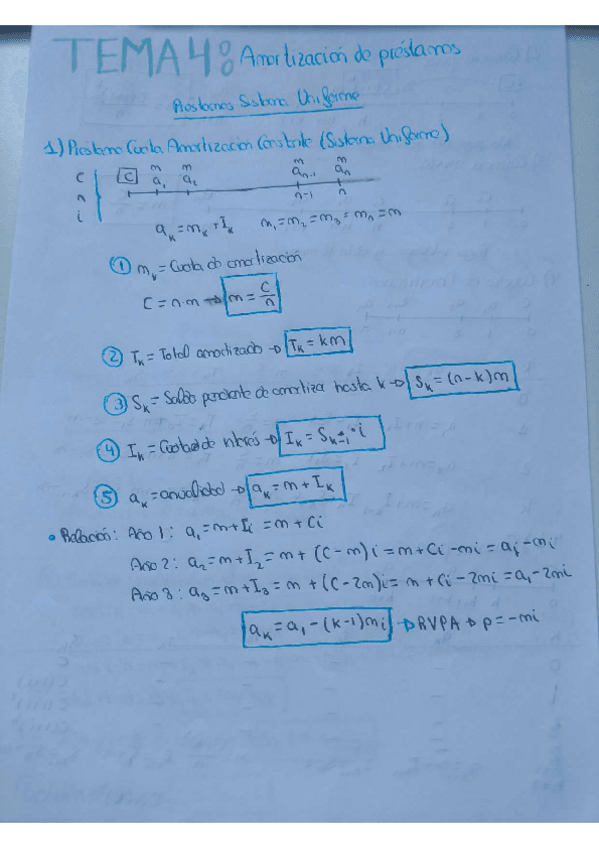 TEMA 4: Amortización de préstamos
Préstamos Sistema Uniforme
1) Préstamo Cuota Amortización Constante (Sistema Uniforme)
C n i
C m m m m
a₁ a₂ aₙ₋₁ aₙ
n-1 n
aₖ = mₖ + Iₖ m₁ = m₂ = m₃ = mₙ = m
① mₖ = Cuota de amortización
C = n·m → m = C/n
② Tₖ = Total amortizado → Tₖ = km
③ Sₖ = Saldo pendiente de amortizar hasta k → Sₖ = (n-k)m
④ Iₖ = Cuota de interés → Iₖ = Sₖ₋₁·i
⑤ aₖ = anualidad → aₖ = m + Iₖ
• Relación: Año 1: a₁ = m + I₁ = m + Ci
Año 2: a₂ = m + I₂ = m + (C-m)i = m + Ci - mi = a₁ - mi
Año 3: a₃ = m + I₃ = m + (C-2m)i = m + Ci - 2mi = a₁ - 2mi
aₖ = a₁ - (k-1)mi → RVPA → p = -mi